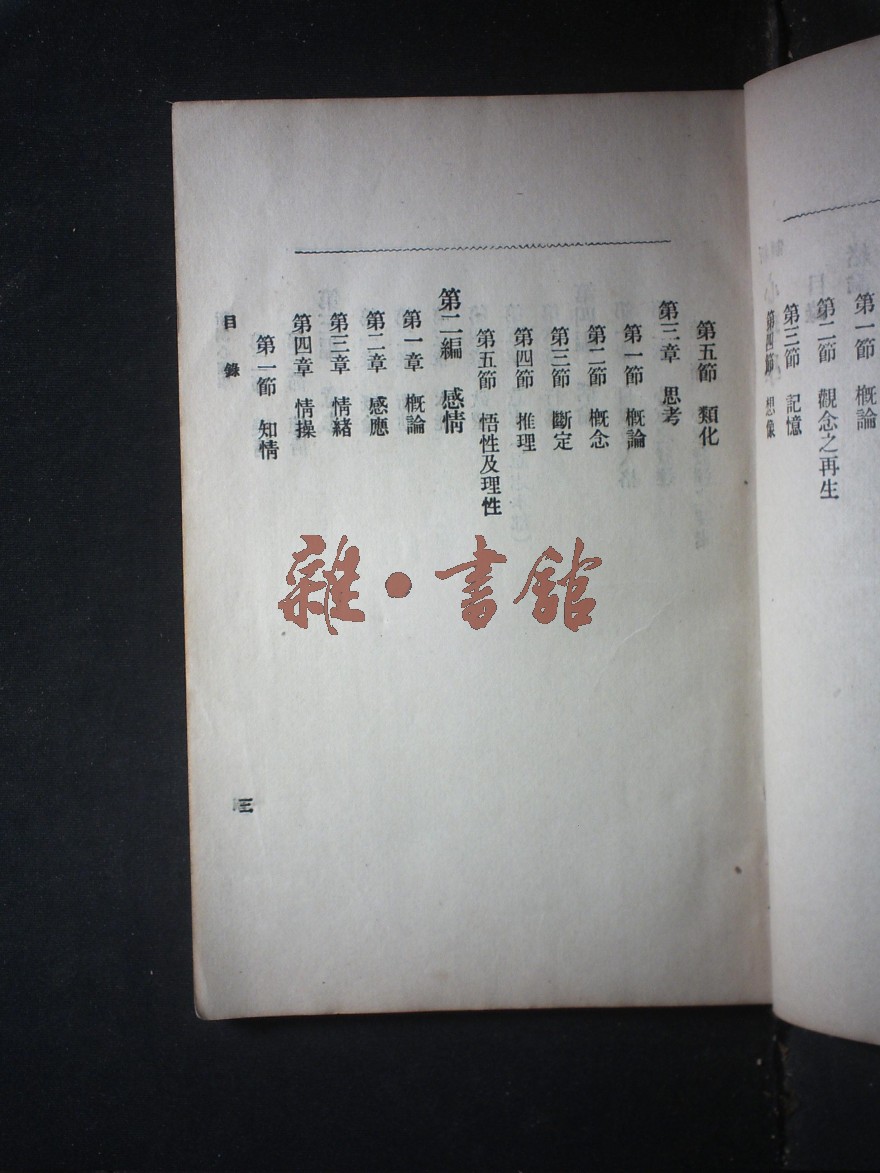 第一節 概論
第二節 觀念之再生
第三節 記憶
第四節 想像
第五節 類化
第三章 思考
第一節 概論
第二節 概念
第三節 斷定
第四節 推理
第五節 悟性及理性
第二編 感情
第一章 概論
第二章 感應
第三章 情緒
第四章 情操
第一節 知情
目錄
三
雜·書館